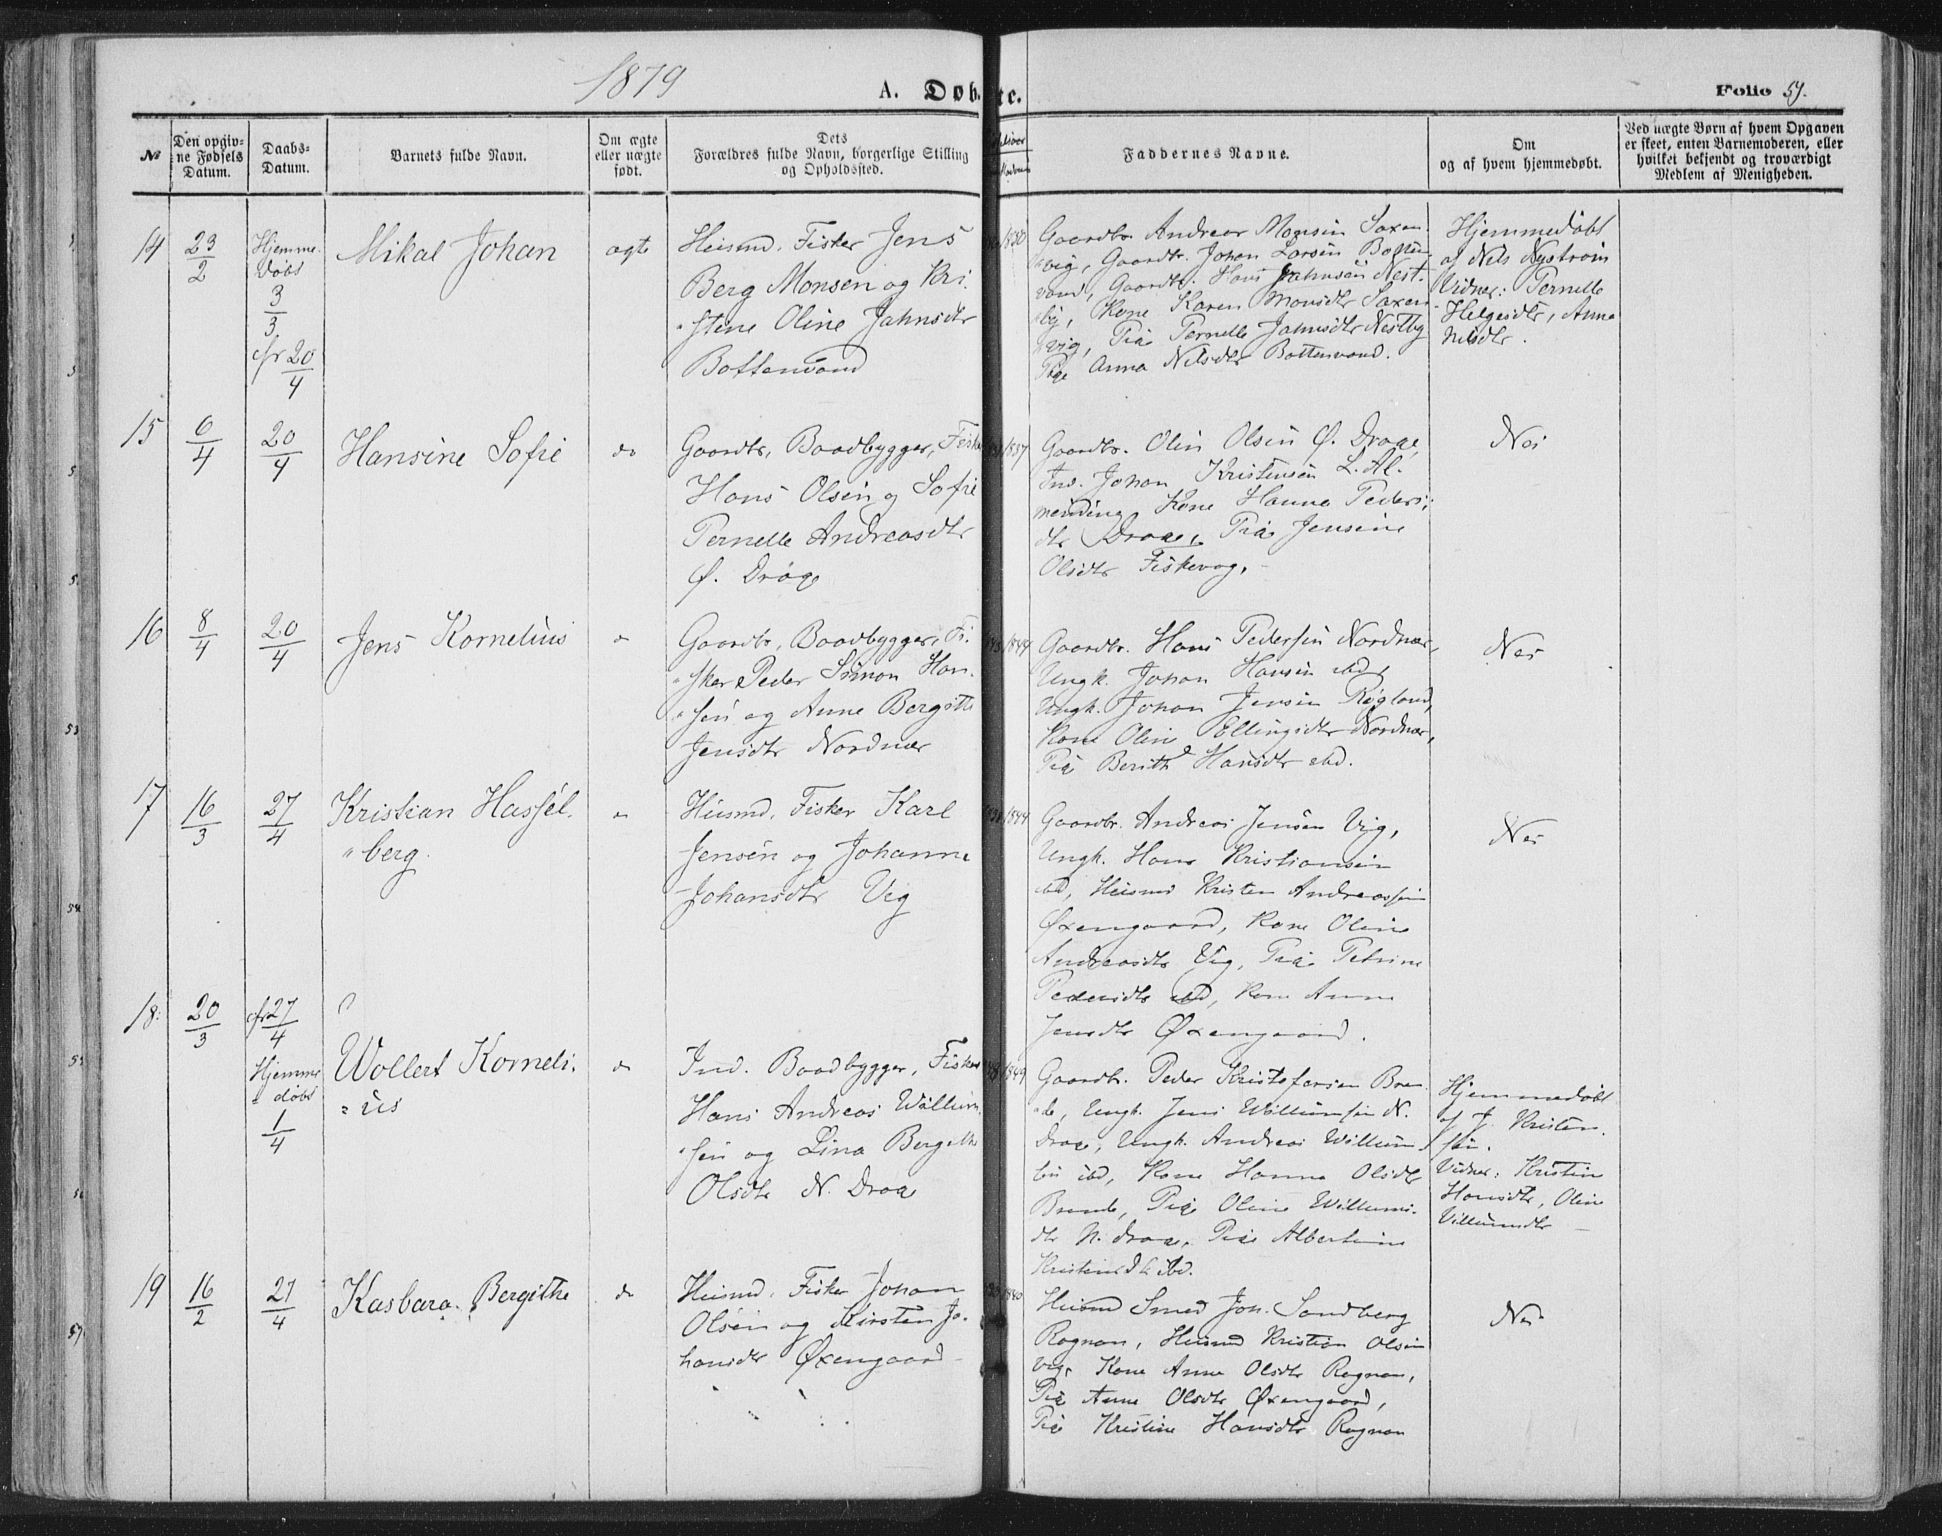 1879
A. Døbte.
Folio 57.
№
Den opgiv-
ne Fødsels
Datum.
Daabs-
Datum.
Barnets fulde Navn.
Om ægte
eller uægte
født.
Dets
Forældres fulde Navn, borgerlige Stilling
og Opholdssted.
Faddernes Navne.
Om
og af hvem hjemmedøbt.
Ved uægte Børn af hvem Opgaven
er skeet, enten Barnemoderen, eller
hvilket bekjendt og troværdigt
Medlem af Menigheden.
14
23/2
Hjemme-
døbt
3/3
cfr 20/4
Mikal Johan
ægte
Huusmd. Fisker Jens
Berg Monsen og Kri-
"stene Oline Jahnsdtr
Bottenvand
1850
Gaardbr. Andreas Monsen Saxen-
"vig, Gaardbr. Johan Larsen Botten-
vand, Gaardbr. Hans Jahnsen Nest-
"by, Kone Karen Monsdtr Saxen-
"vig, Pia Pernelle Jahnsdtr Nestby
Pige Anna Nilsdtr Bottenvand.
Hjemmedøbt
af Nils Nystrøm
Vidner: Pernelle
Helgesdtr, Anna
Nilsdtr.
15
6/4
20/4
Hansine Sofie
do
Gaardbr, Baadbygger, Fisker
Hans Olsen og Sofie
Pernelle Andreasdtr
Ø. Drage
1837
Gaardbr. Olin Olsen Ø. Drage,
Ind. Johan Kristensen L. Al-
mending, Kone Hanna Peders-
dtr Drage, Pia Jensine
Olsdtr Fiskevag.
Nei
16
8/4
20/4
Jens Kornelius
do
Gaardbr, Baadbygger, Fi-
"sker Peder Simon Han-
"sen og Anne Bergitte
Jensdtr Nordnær
1844
Gaardbr. Hans Pedersen Nordnær,
Ungk. Johan Hansen ibd,
Ungk. Johan Jensen Røgland,
Kone Olin Ellingsdtr Nordnær,
Pia Berith Hansdtr ibd.
Nei
17
16/3
27/4
Kristian Hassel-
"berg.
do
Huusmd. Fisker Karl
Jensen og Johanna
Johansdtr Vig
1844
Gaardbr. Andreas Jensen Vig,
Ungk. Hans Kristiansen
ibd, Huusmd Kristen Andreassen
Øxengaard, Kone Oline
Andreasdtr Vig, Pia Petrine
Pedersdtr ibd, Kone Anne
Jensdtr Øxengaard.
Nei
18.
20/3
cfr 27/4
Hjemme-
"døbt
1/4
Wollert Korneli-
"us
do
Ind. Baadbygger, Fisker
Hans Andreas Willum-
"sen og Lina Bergithe
Olsdtr N. Drage
1849
Gaardbr. Peder Kristofersen Bren-
"de, Ungk. Jens Willumsen N.
Drage, Ungk. Andreas Willum-
sen ibd, Kone Hanna Olsdtr
Brende, Pige Oline Willums-
dtr N. Drage, Pia Albertine
Kristensdtr ibd.
Hjemmedøbt
af J. Kristen-
sen.
Vidner: Kristin
Hansdtr, Olin
Villumsdtr
19
16/2
27/4
Kasbara Bergithe
do
Huusmd. Fisker Johan
Olsen og Kirsten Jo-
hansdtr Øxengaard
1840
Huusmd Smed Joh. Sandberg
Rognan, Huusmd Kristian Olsen
Vig, Kone Anne Olsdtr Rognan,
Pia Anne Olsdtr Øxengaard,
Pia Kristine Hansdtr Rognan
Nei